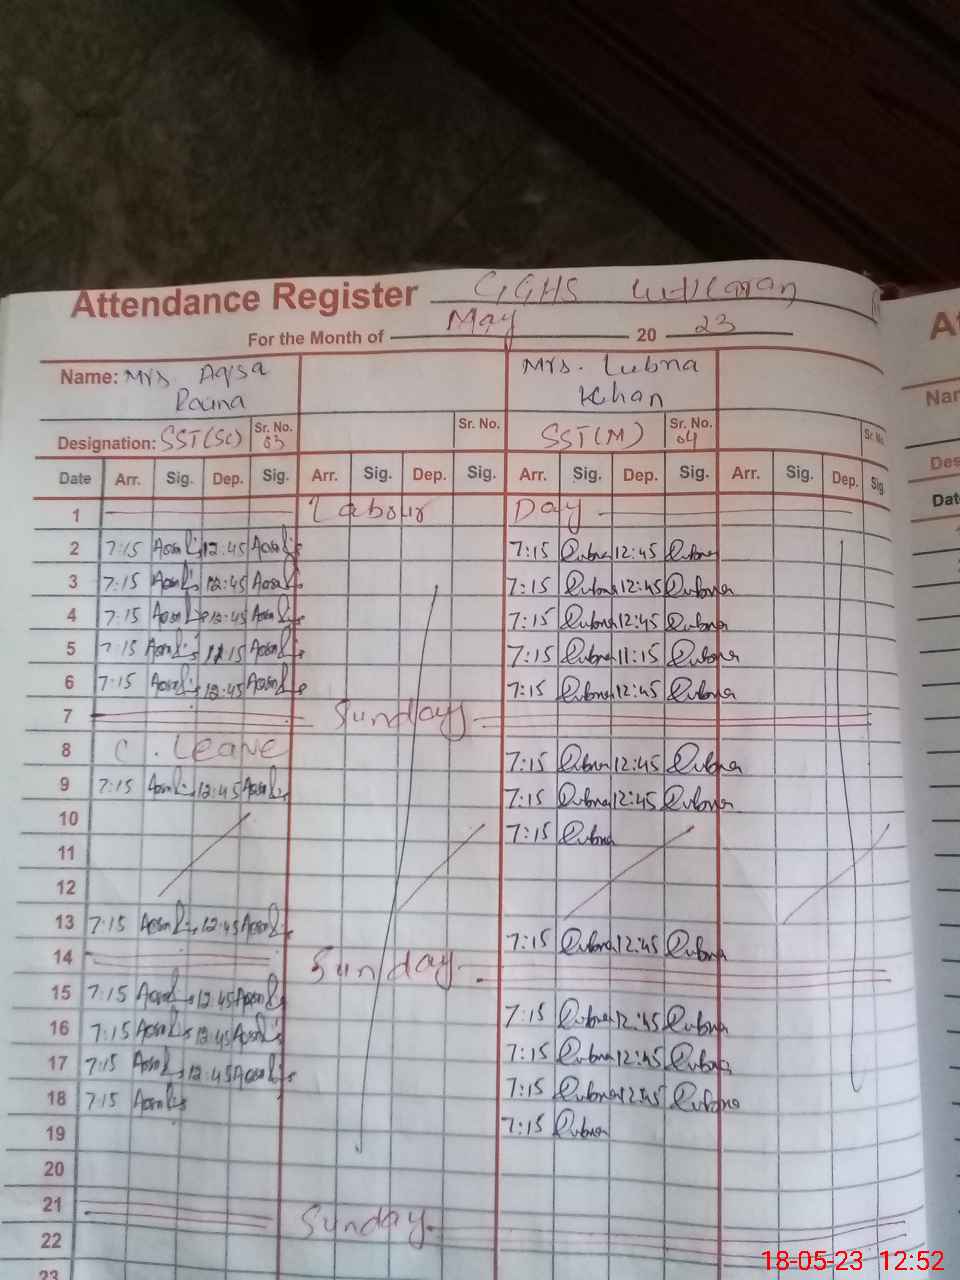 Attendance Register GGHS
For the Month of May 20 23
Name: Mrs Aqsa Mrs. Lubna
Khan
Designation: SST(SC) Sr. No. 03 Sr. No. SST(M) Sr. No. 04 Sr. No.
Date Arr. Sig. Dep. Sig. Arr. Sig. Dep. Sig. Arr. Sig. Dep. Sig. Arr. Sig. Dep. Sig
1 Labour Day
2 7:15 12:45 7:15 Lubna 12:45 Lubna
3 7:15 12:45 7:15 Lubna 12:45 Lubna
4 7:15 12:45 7:15 Lubna 12:45 Lubna
5 7:15 11:15 7:15 Lubna 11:15 Lubna
6 7:15 12:45 7:15 Lubna 12:45 Lubna
7 Sunday
8 C. Leave 7:15 Lubna 12:45 Lubna
9 7:15 12:45 7:15 Lubna 12:45 Lubna
10 7:15 Lubna
11
12
13 7:15 12:45 7:15 Lubna 12:45 Lubna
14 Sunday
15 7:15 12:45 7:15 Lubna 12:45 Lubna
16 7:15 12:45 7:15 Lubna 12:45 Lubna
17 7:15 12:45 7:15 Lubna 12:45 Lubna
18 7:15 7:15 Lubna
19
20
21 Sunday
22
23
18-05-23 12:52